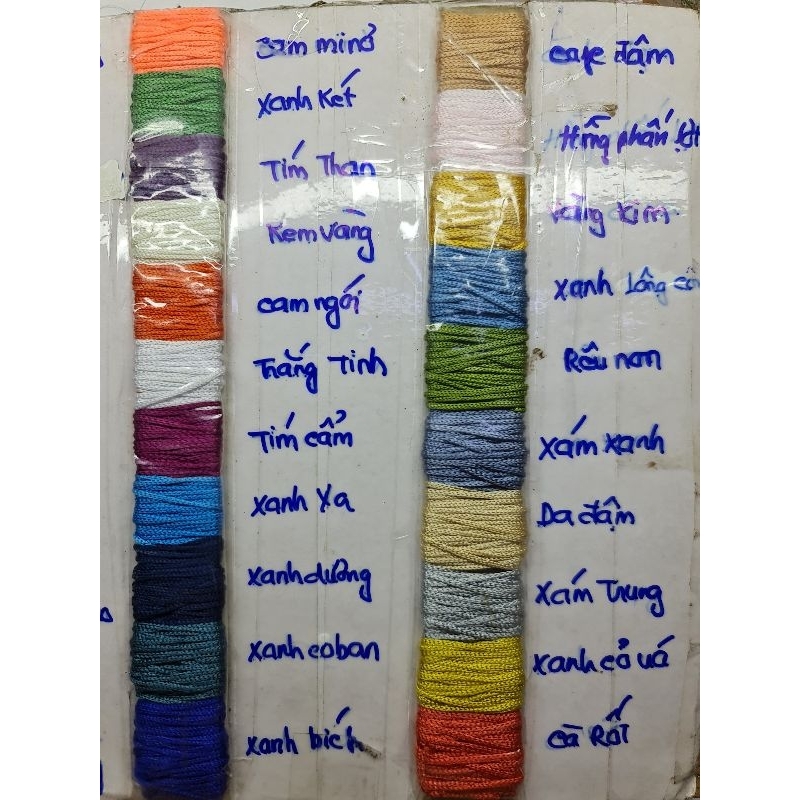 cam minơ
xanh két
Tím Than
Kem vàng
cam ngói
Trắng Tinh
Tím cẩm
xanh xa
xanh dương
xanh coban
xanh bích
cafe đậm
Hồng phấn
vàng kim
xanh lông
Rêu non
xám xanh
Da đậm
xám Trung
xanh cỏ úá
cà Rốt